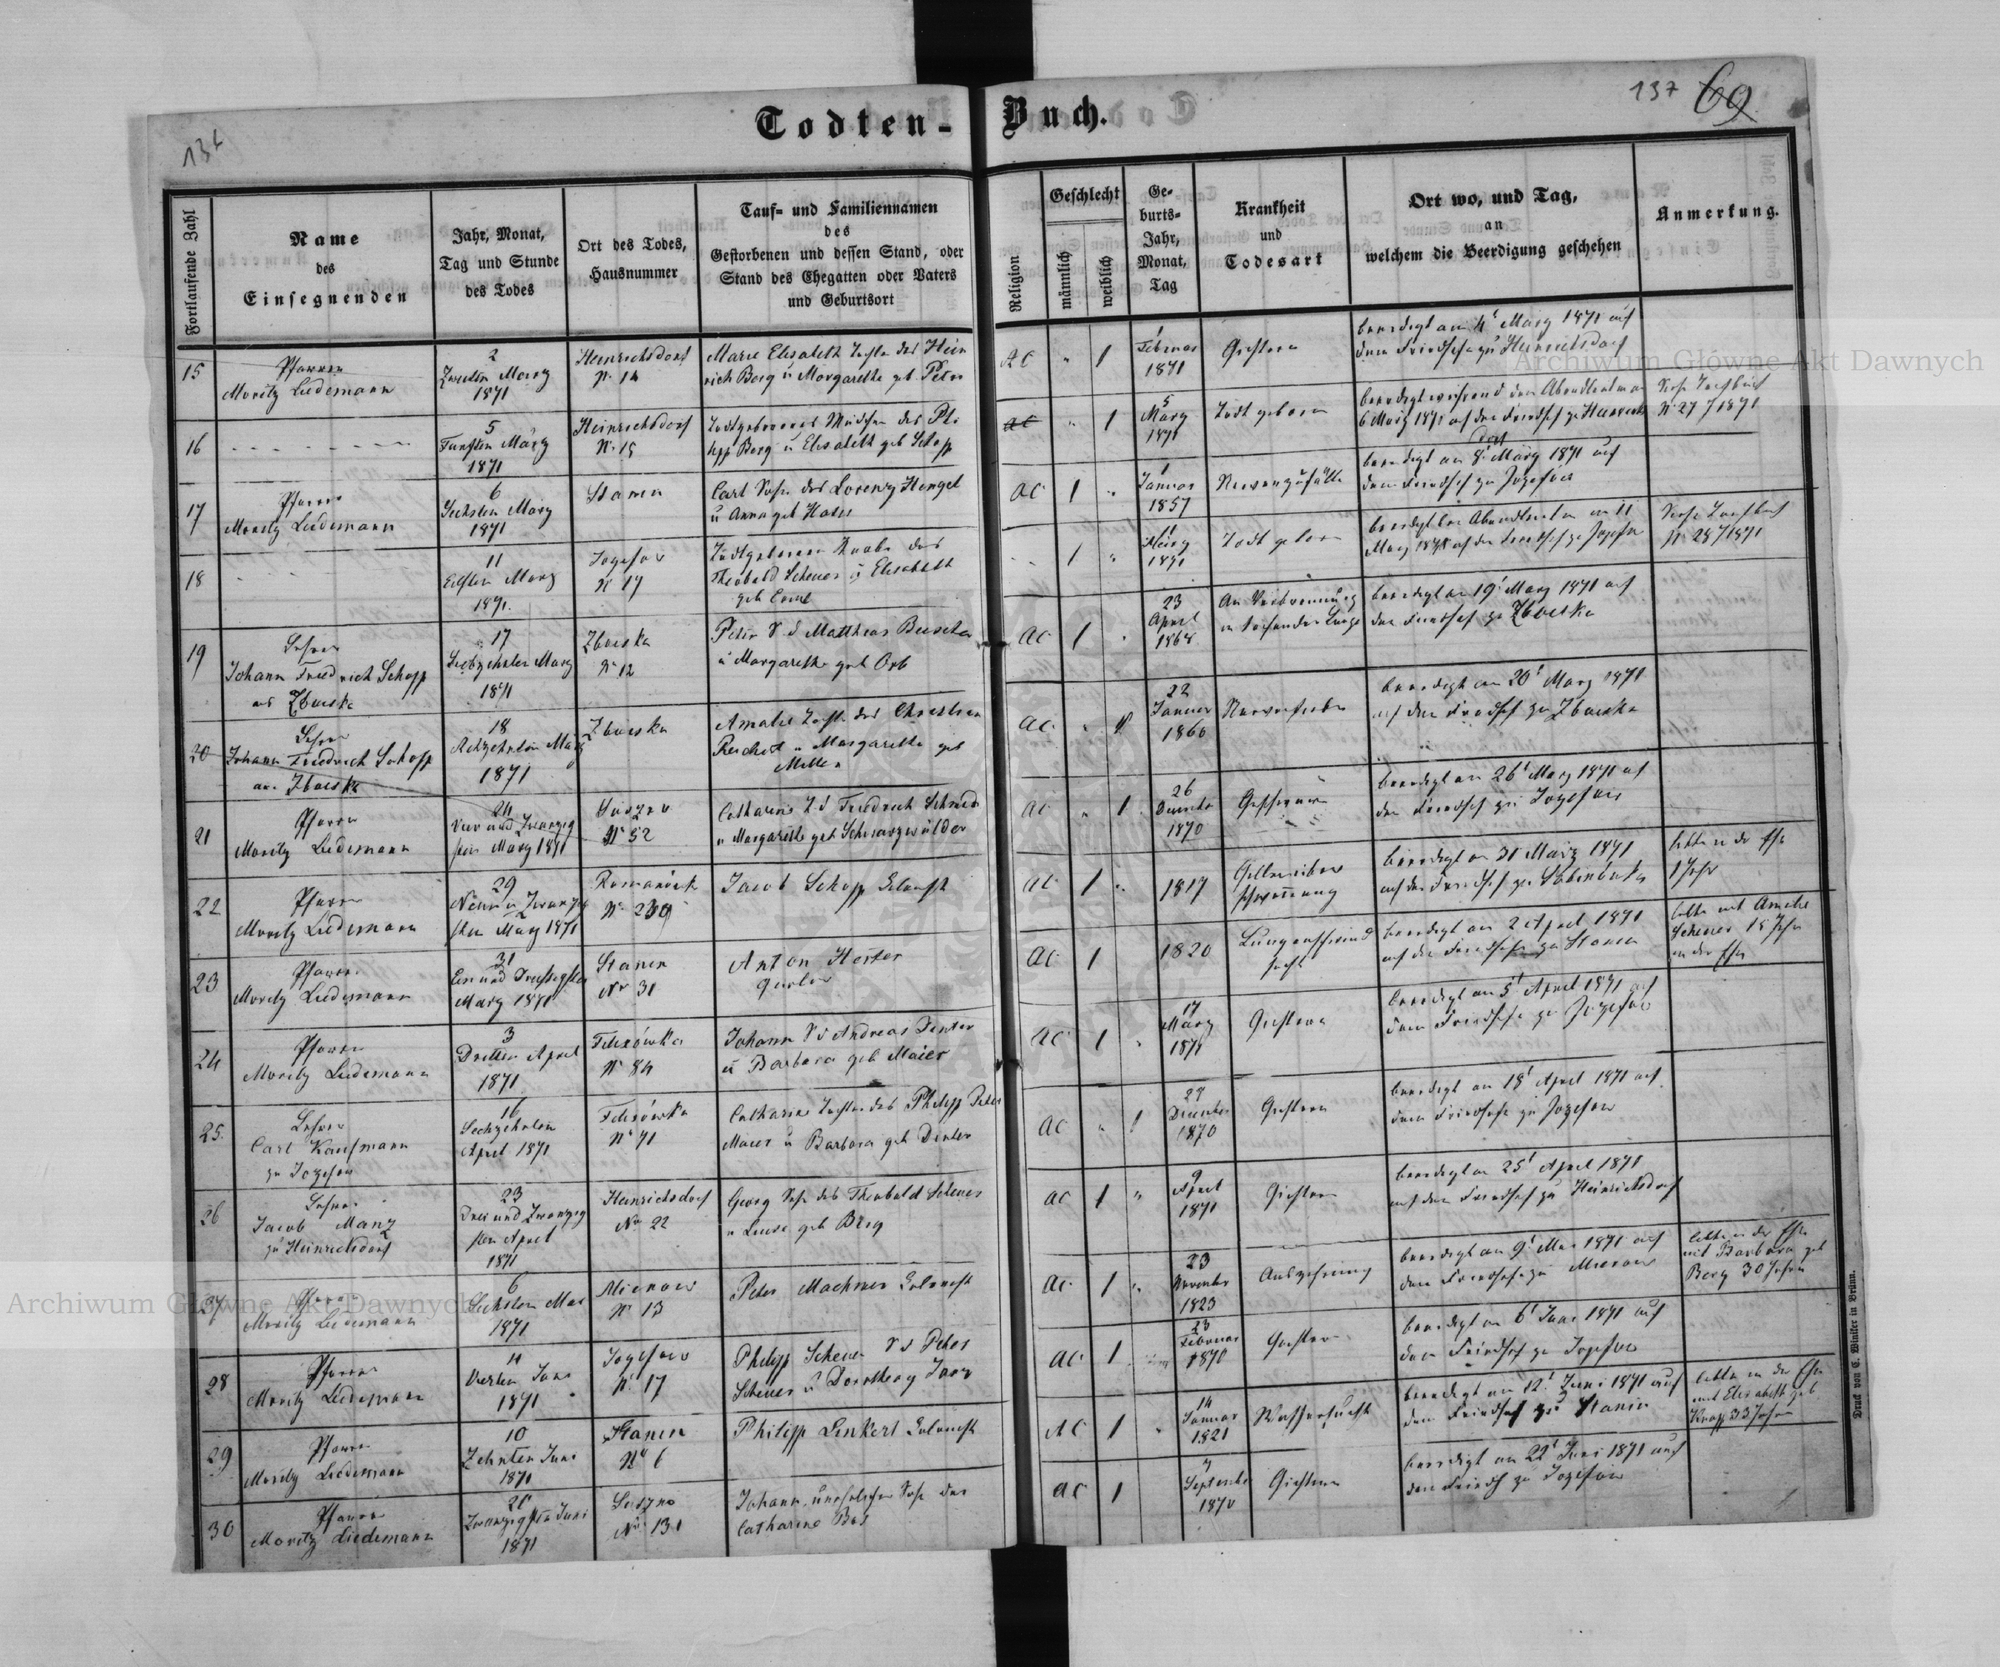 136
137
69
Todten-Buch.
Fortlaufende Zahl
Name
des
Einsegnenden
Jahr, Monat,
Tag und Stunde
des Todes
Ort des Todes,
Hausnummer
Tauf- und Familiennamen
des
Gestorbenen und dessen Stand, oder
Stand des Ehegatten oder Vaters
und Geburtsort
Religion
Geschlecht
männlich
weiblich
Ge-
burts-
Jahr,
Monat,
Tag
Krankheit
und
Todesart
Ort wo, und Tag,
an
welchem die Beerdigung geschehen
Anmerkung.
15
Pfarrer
Moritz Liedemann
2
Zweiten März
1871
Heinrichsdorf
N. 14
Marie Elisabeth Tochter des Hein
rich Berg u Margarethe geb Peter
AC
1
1
Februar
1871
Gichtern
beerdigt am 4t März 1871 auf
dem Friedhofe zu Heinrichsdorf
16
5
Fünften März
1871
Heinrichsdorf
N. 15
Todtgeborenes Mädchen des Phi
lipp Berg u Elisabeth geb Schopp
AC
1
5
März
1871
Todt geboren
6 März 1871 auf dem Friedhof zu Heinrichs
dorf
N. 27 / 1871
17
Pfarrer
Moritz Liedemann
6
Sechsten März
1871
Stanin
Carl Sohn des Lorenz Hengel
u Anna geb Haas
AC
1
1
Januar
1857
beerdigt am 8t März 1871 auf
dem Friedhof zu Jozefow
18
11
Eilften März
1871.
Jozefow
N. 17
Todtgeborener Knabe des
Theobald Scheuer u Elisabeth
geb
1
11
März
1871
Todt geboren
März 1871 auf dem Friedhof zu Jozefow
N. 28 / 1871
19
Lehrer
Johann Friedrich Schopp
aus Zboiska
17
Siebzehnten März
1871
Zboiska
N. 12
Peter S d Matthias
u Margarethe geb Orb
AC
1
23
April
1868
beerdigt am 19t März 1871 auf
dem Friedhof zu Zboiska
20
Lehrer
Johann Friedrich Schopp
aus Zboiska
18
Achzehnten März
1871
Zboiska
Amalie Tochter des Christian
Reichert u Margarethe geb
Miller
AC
1
22
Januar
1866
Nervenfieber
beerdigt am 20t März 1871
auf dem Friedhof zu Zboiska
21
Pfarrer
Moritz Liedemann
24
Vier und Zwanzig
sten März 1871
Suszno
N. 52
Catharine T d Friedrich Schneider
u Margarethe geb Schwarzwälder
AC
1
26
Dezember
1870
beerdigt am 26t März 1871 auf
dem Friedhof zu Jozefow
22
Pfarrer
Moritz Liedemann
29
Neun u Zwanzig
sten März 1871
Romanówk
N. 239
Jacob Schopp
AC
1
1817
beerdigt am 31 März 1871
auf dem Friedhof zu Sabinowka
lebte in der Ehe
1 Jahr
23
Pfarrer
Moritz Liedemann
31
Ein und Dreißigsten
März 1871
Stanin
Nr 31
Anton Hoster
AC
1
1820
Lungenschwind
sucht
beerdigt am 2 April 1871
auf dem Friedhofe zu Stanin
lebte mit Amalie
Scheuer 15 Jahr
in der Ehe
24
Pfarrer
Moritz Liedemann
3
Dritten April
1871
Felixówka
N. 84
Johann S d Andreas Dexter
u Barbara geb Maier
AC
1
17
März
1871
Gichtern
beerdigt am 5t April 1871 auf
dem Friedhofe zu Jozefow
25.
Lehrer
Carl Kaufmann
zu Jozefow
16
Sechzehnten
April 1871
Felixówka
N. 71
Catharine Tochter des Philipp Peter
Maier u Barbara geb Dexter
AC
1
Dezember
1870
Gichtern
beerdigt am 18t April 1871 auf
dem Friedhofe zu Jozefow
26
Lehrer
Jacob Manz
zu Heinrichsdorf
23
Drei und Zwanzig
sten April
1871
Heinrichsdorf
No 22
Georg Sohn des Theobald Scheuer
u Louise geb Berg
AC
1
9
April
1871
Gichtern
beerdigt am 25t April 1871
auf dem Friedhof zu Heinrichsdorf
27
Pfarrer
Moritz Liedemann
6
Sechsten Mai
1871
Mierow
N. 13
Peter Machmer
AC
1
23
November
1823
Auszehrung
beerdigt am 9t Mai 1871 auf
dem Friedhofe zu Mierow
lebte in der Ehe
mit Barbara geb
Berg 30 Jahre
28
Pfarrer
Moritz Liedemann
4
Vierten Juni
1871
Jozefow
N. 17
Philipp Scheuer S d Peter
Scheuer u Dorothea
AC
1
23
Februar
1870
Gichtern
beerdigt am 6t Juni 1871 auf
dem Friedhof zu Jozefow
29
Pfarrer
Moritz Liedemann
10
Zehnten Juni
1871
Stanin
No 6
Philipp Linkert
AC
1
14
Januar
1821
Wassersucht
beerdigt am 12t Juni 1871 auf
dem Friedhof zu Stanin
lebte in der Ehe
mit Elisabeth geb
Knapp 33 Jahre
30
Pfarrer
Moritz Liedemann
20
Zwanzigsten Juni
1871
Suszno
No 131
Johann, unehelicher Sohn der
Catharine
AC
1
September
1870
Gichtern
beerdigt am 22t Juni 1871 auf
dem Friedh zu Jozefow
Druck von C. Winiker in Brünn.
Archiwum Główne Akt Dawnych
Archiwum Główne Akt Dawnych